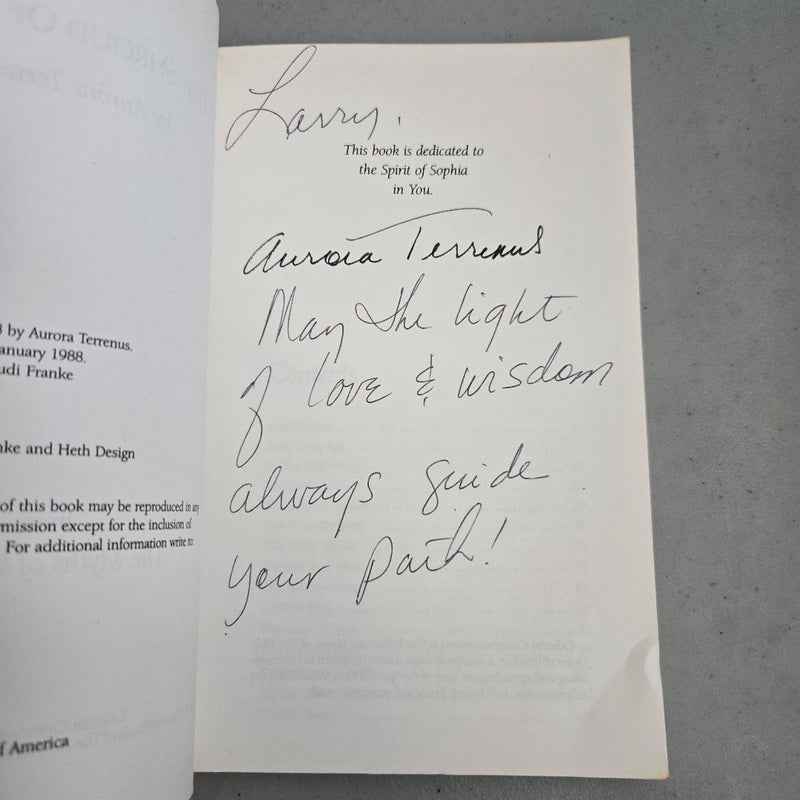 8 by Aurora Terrenus.
anuary 1988.
udi Franke
nke and Heth Design
of this book may be reproduced in any
mission except for the inclusion of
For additional information write to:
f America
Larry,
This book is dedicated to
the Spirit of Sophia
in You.
Aurora Terrenus
May the light
of love & wisdom
always guide
your path!